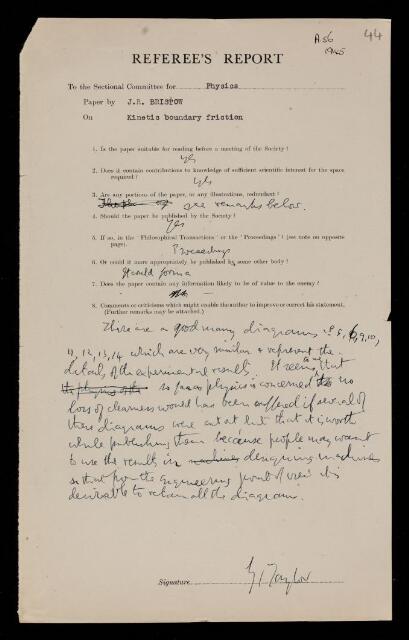 A56
1945
44
REFEREE'S REPORT
To the Sectional Committee for Physics
Paper by J.R. BRISTOW
On Kinetic boundary friction
1. Is the paper suitable for reading before a meeting of the Society?
Yes
2. Does it contain contributions to knowledge of sufficient scientific interest for the space
required?
Yes
3. Are any portions of the paper, or any illustrations, redundant?
see remarks below.
4. Should the paper be published by the Society?
Yes
5. If so, in the "Philosophical Transactions" or the "Proceedings"? (see note on opposite
page).
Proceedings
6. Or could it more appropriately be published by some other body?
It could form a
7. Does the paper contain any information likely to be of value to the enemy?
8. Comments or criticisms which might enable the author to improve or correct his statement.
(Further remarks may be attached.)
There are a good many diagrams 8, 9, 10,
11, 12, 13, 14 which are very similar & represent the
details of the experimental results. It seems that
so far as physics is concerned no
loss of clearness would have been suffered if several of
these diagrams were cut out but that it is worth
while publishing them because people may want
to use the results in designing machines
so that from the engineering point of view it is
desirable to retain all the diagrams.
Signature GI Taylor